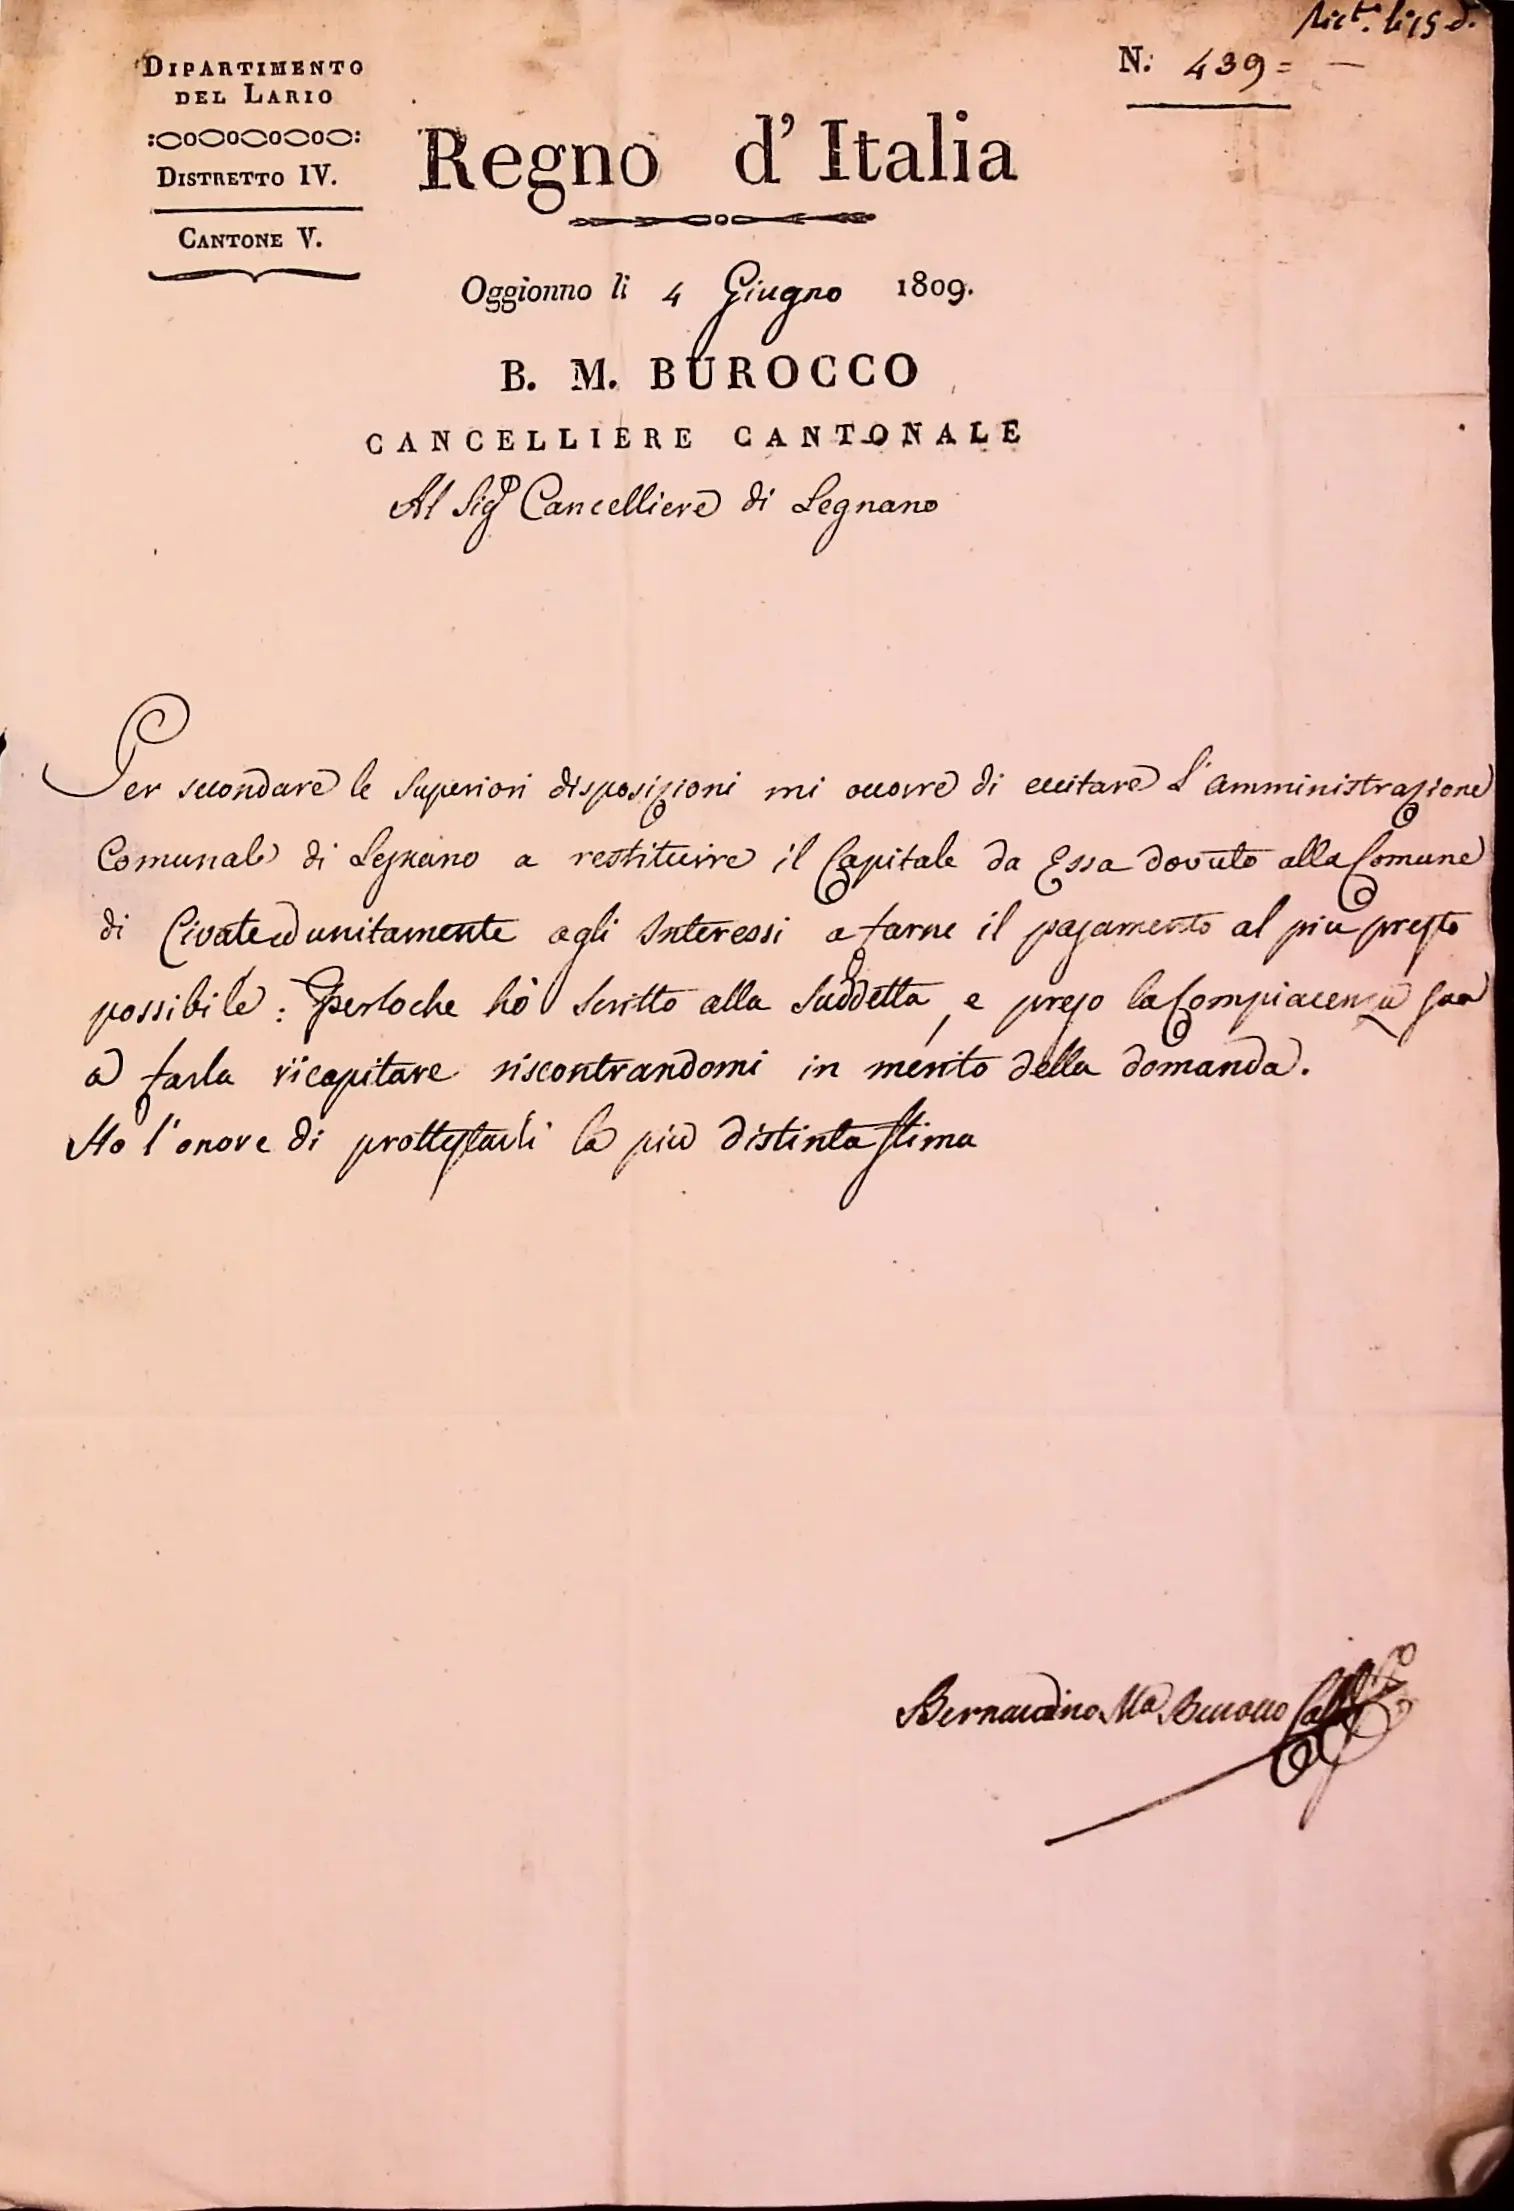 Ric.ta li 15 d.º
N. 439 =
DIPARTIMENTO
DEL LARIO
DISTRETTO IV.
CANTONE V.
Regno d' Italia
Oggionno li 4 Giugno 1809.
B. M. BUROCCO
CANCELLIERE CANTONALE
Al Sig.r Cancelliere di Legnano
Per secondare le Superiori disposizioni mi occorre di eccitare l'amministrazione
Comunale di Legnano a restituire il Capitale da Essa dovuto alla Comune
di Civate ed unitamente agli Interessi a farne il pagamento al più presto
possibile: Perloche hò scritto alla Suddetta, e prego la Compiacenza sua
a farla ricapitare riscontrandomi in merito della domanda.
Ho l'onore di prottestarli la più distinta stima
Bernardino M.a Burocco